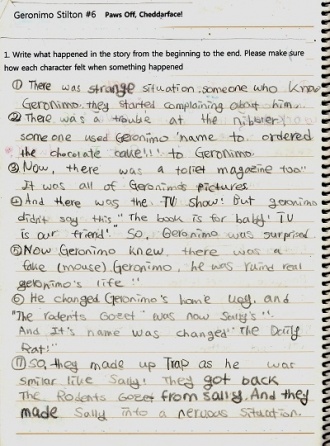 Geronimo Stilton #6 Paws Off, Cheddarface!
1. Write what happened in the story from the beginning to the end. Please make sure
how each character felt when something happened
① There was strange situation. someone who know
Geronimo. they started complaining about him.
② There was a trouble at the
someone used Geronimo 'name to ordered
the chocolate cake!!! to Geronimo.
③ Now, there was a toliet magazine too"
It was all of Geronimo's pictures
④ And there was the TV show! But geronimo
didn't say this "The book is for baby! TV
is our friend!" So, Geronimo was surprised.
⑤ Now Geronimo knew, there was a
fake (mouse) Geronimo, he was ruind real
geronimo's life"
⑥ He changed Geronimo's home ugly, and
"The rodents Gozet" was now Sally's".
And It's name was changed "The Daily
Rat!"
⑦ So, they made up Trap as he was
smilar like Sally! They got back
The Rodents Gozet from sally. And they
made Sally into a nervous situation.